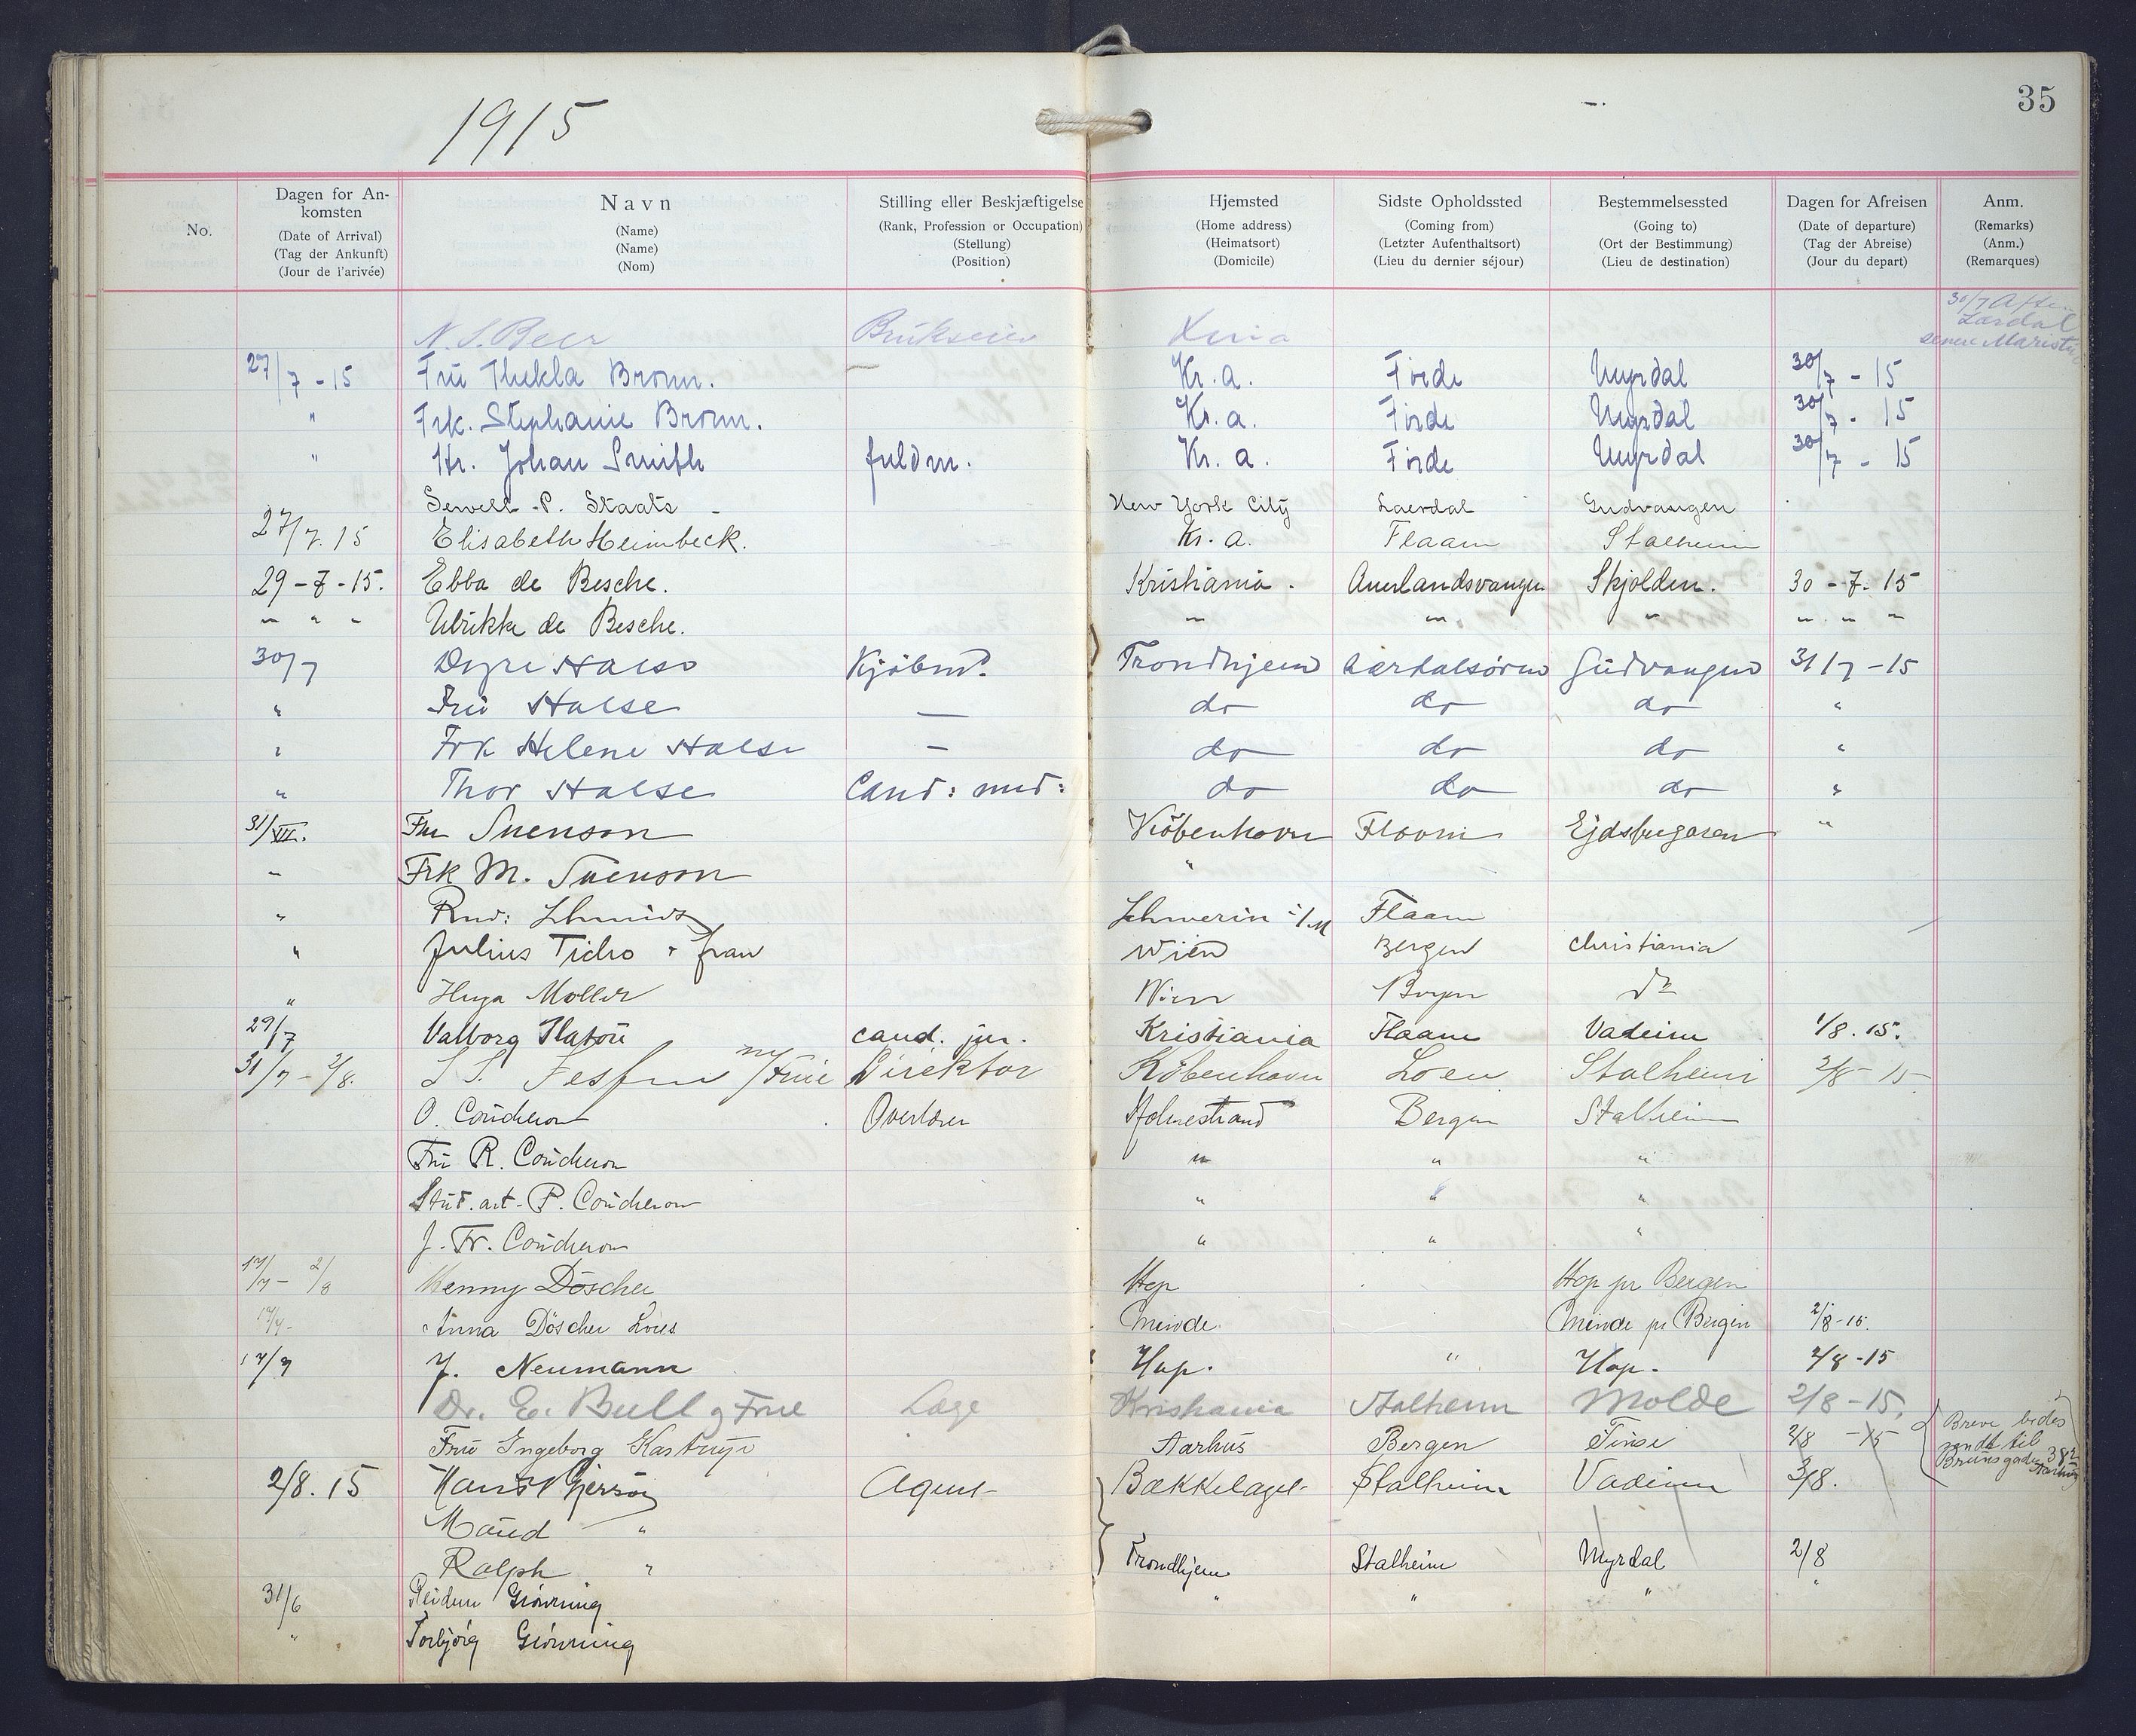 1915
35
No.
Dagen for An-
komsten
(Date of Arrival)
(Tag der Ankunft)
(Jour de l'arivée)
Navn
(Name)
(Name)
(Nom)
Stilling eller Beskjæftigelse
(Rank, Profession or Occupation)
(Stellung)
(Position)
Hjemsted
(Home address)
(Heimatsort)
(Domicile)
Sidste Opholdssted
(Coming from)
(Letzter Aufenthaltsort)
(Lieu du dernier séjour)
Bestemmelsessted
(Going to)
(Ort der Bestimmung)
(Lieu de destination)
Dagen for Afreisen
(Date of departure)
(Tag der Abreise)
(Jour du depart)
Anm.
(Remarks)
(Anm.)
(Remarques)
30/7 Aften
Lærdal
senere Maristu
N. S. Beer Brukseier Xnia
27/7 - 15 Fru Thekla Bronn. Kr. a. Förde Myrdal 30/7 - 15
" Frk. Stephanie Bronn. Kr. a. Förde Myrdal 30/7 - 15
" Hr. Johan Smith fuldm. Kr. a. Förde Myrdal 30/7 - 15
Sewell P. Staats - New York City Laerdal Gudvangen
27/7. 15 Elisabeth Heimbeck. Kr. a. Flaam Stalheim
29 - 7 - 15. Ebba de Besche. Kristiania. Aurlandsvangen Skjolden. 30 - 7. 15
" " " Ulrikke de Besche. " " " " " "
30/7 Halse Kjöbmd. Trondhjem Lærdalsören Gudvangen 31/7 - 15
" Fru Halse — do do do "
" Frk Helene Halse — do do do "
" Thor Halse Cand: med: do do do "
31/VII. Fru Suenson Köbenhavn Flaam Ejdsbugaren "
" Frk M. Suenson "
" Rud: Schmidt Schwerin i/M Flaam
" Julius Ticho & frau Wien Bergen Christiania
" Hugo Möller Wien Bergen do
29/7 Valborg Platou cand. jur. Kristiania Flaam Vadeim 1/8. 15.
31/7 - 2/8. m/Frue Direktör Köbenhavn Loen Stalheim 2/8 - 15
O. Coucheron Overlærer Holmestrand Bergen Stalheim
Fru R. Coucheron " " "
Stud. art. P. Coucheron " " "
J. Fr. Coucheron " " "
17/7 - 2/8 Henny Döscher Hop Hop pr Bergen
17/7 - Anna Döscher Minde. Minde pr Bergen 2/8 - 15.
17/7 J. Neumann Hop. " Hop. 2/8 - 15
Dr. E. Bull og Frue Læge Kristiania Stalheim Molde 2/8 - 15,
Fru Ingeborg Kastrup Aarhus Bergen Finse 2/8 - 15 Breve bedes
sendt til
Brunsgade 38 2
Aarhus
2/8. 15 Agent Bækkelaget Stalheim Vadeim 3/8.
Maud "
Ralph " Trondhjem Stalheim Myrdal 2/8
31/6 Reidun Giövning " " " "
" Torbjörg Giövning